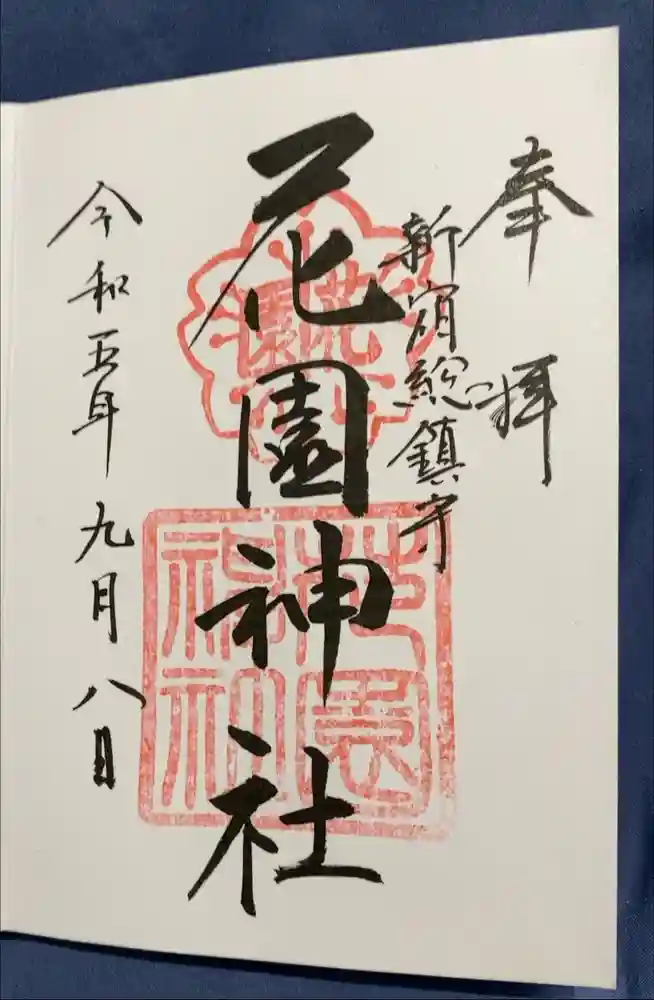 奉拝
新宿総鎮守
花園神社
令和五年九月八日
花園
花園神社